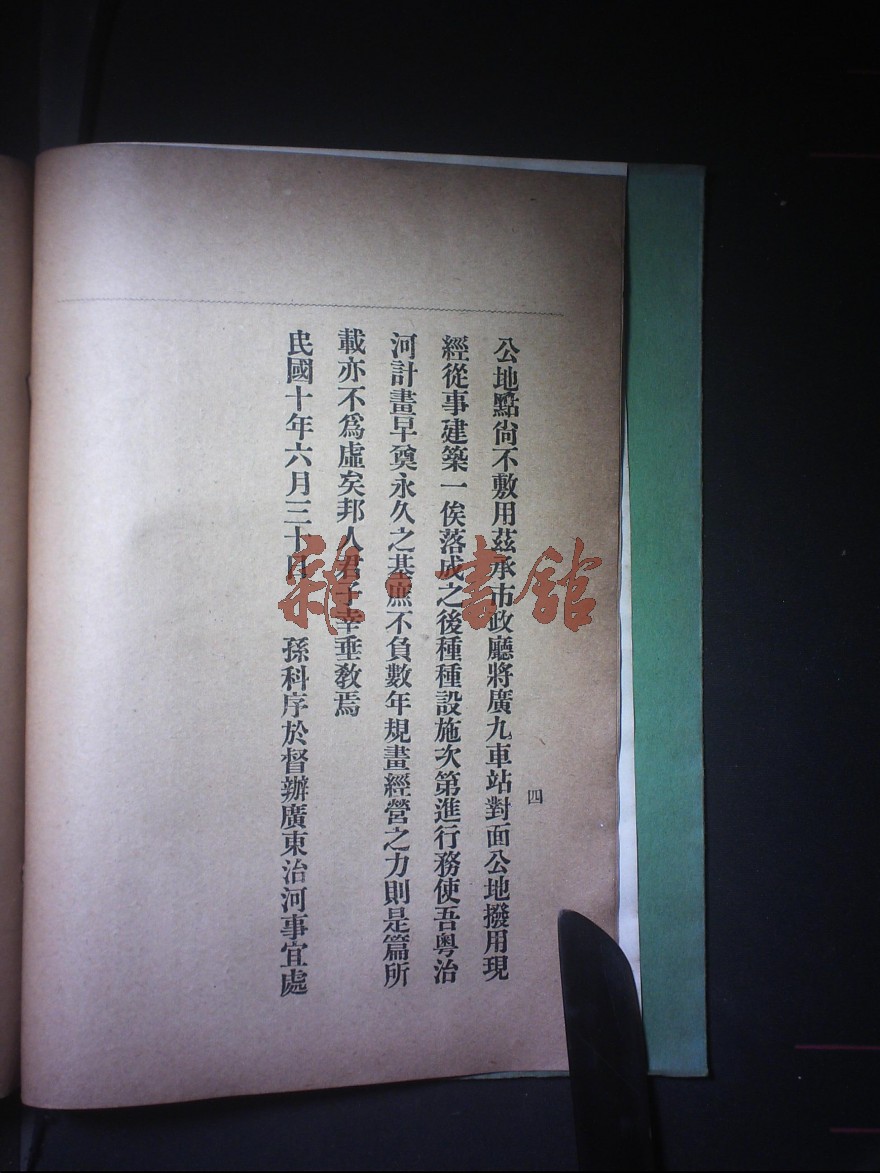 公地點尙不敷用茲承市政廳將廣九車站對面公地撥用現
經從事建築一俟落成之後種種設施次第進行務使吾粵治
河計畫早奠永久之基庶不負數年規畫經營之力則是篇所
載亦不爲虛矣邦人君子幸垂敎焉
民國十年六月三十日 孫科序於督辦廣東治河事宜處
四
雜·書館